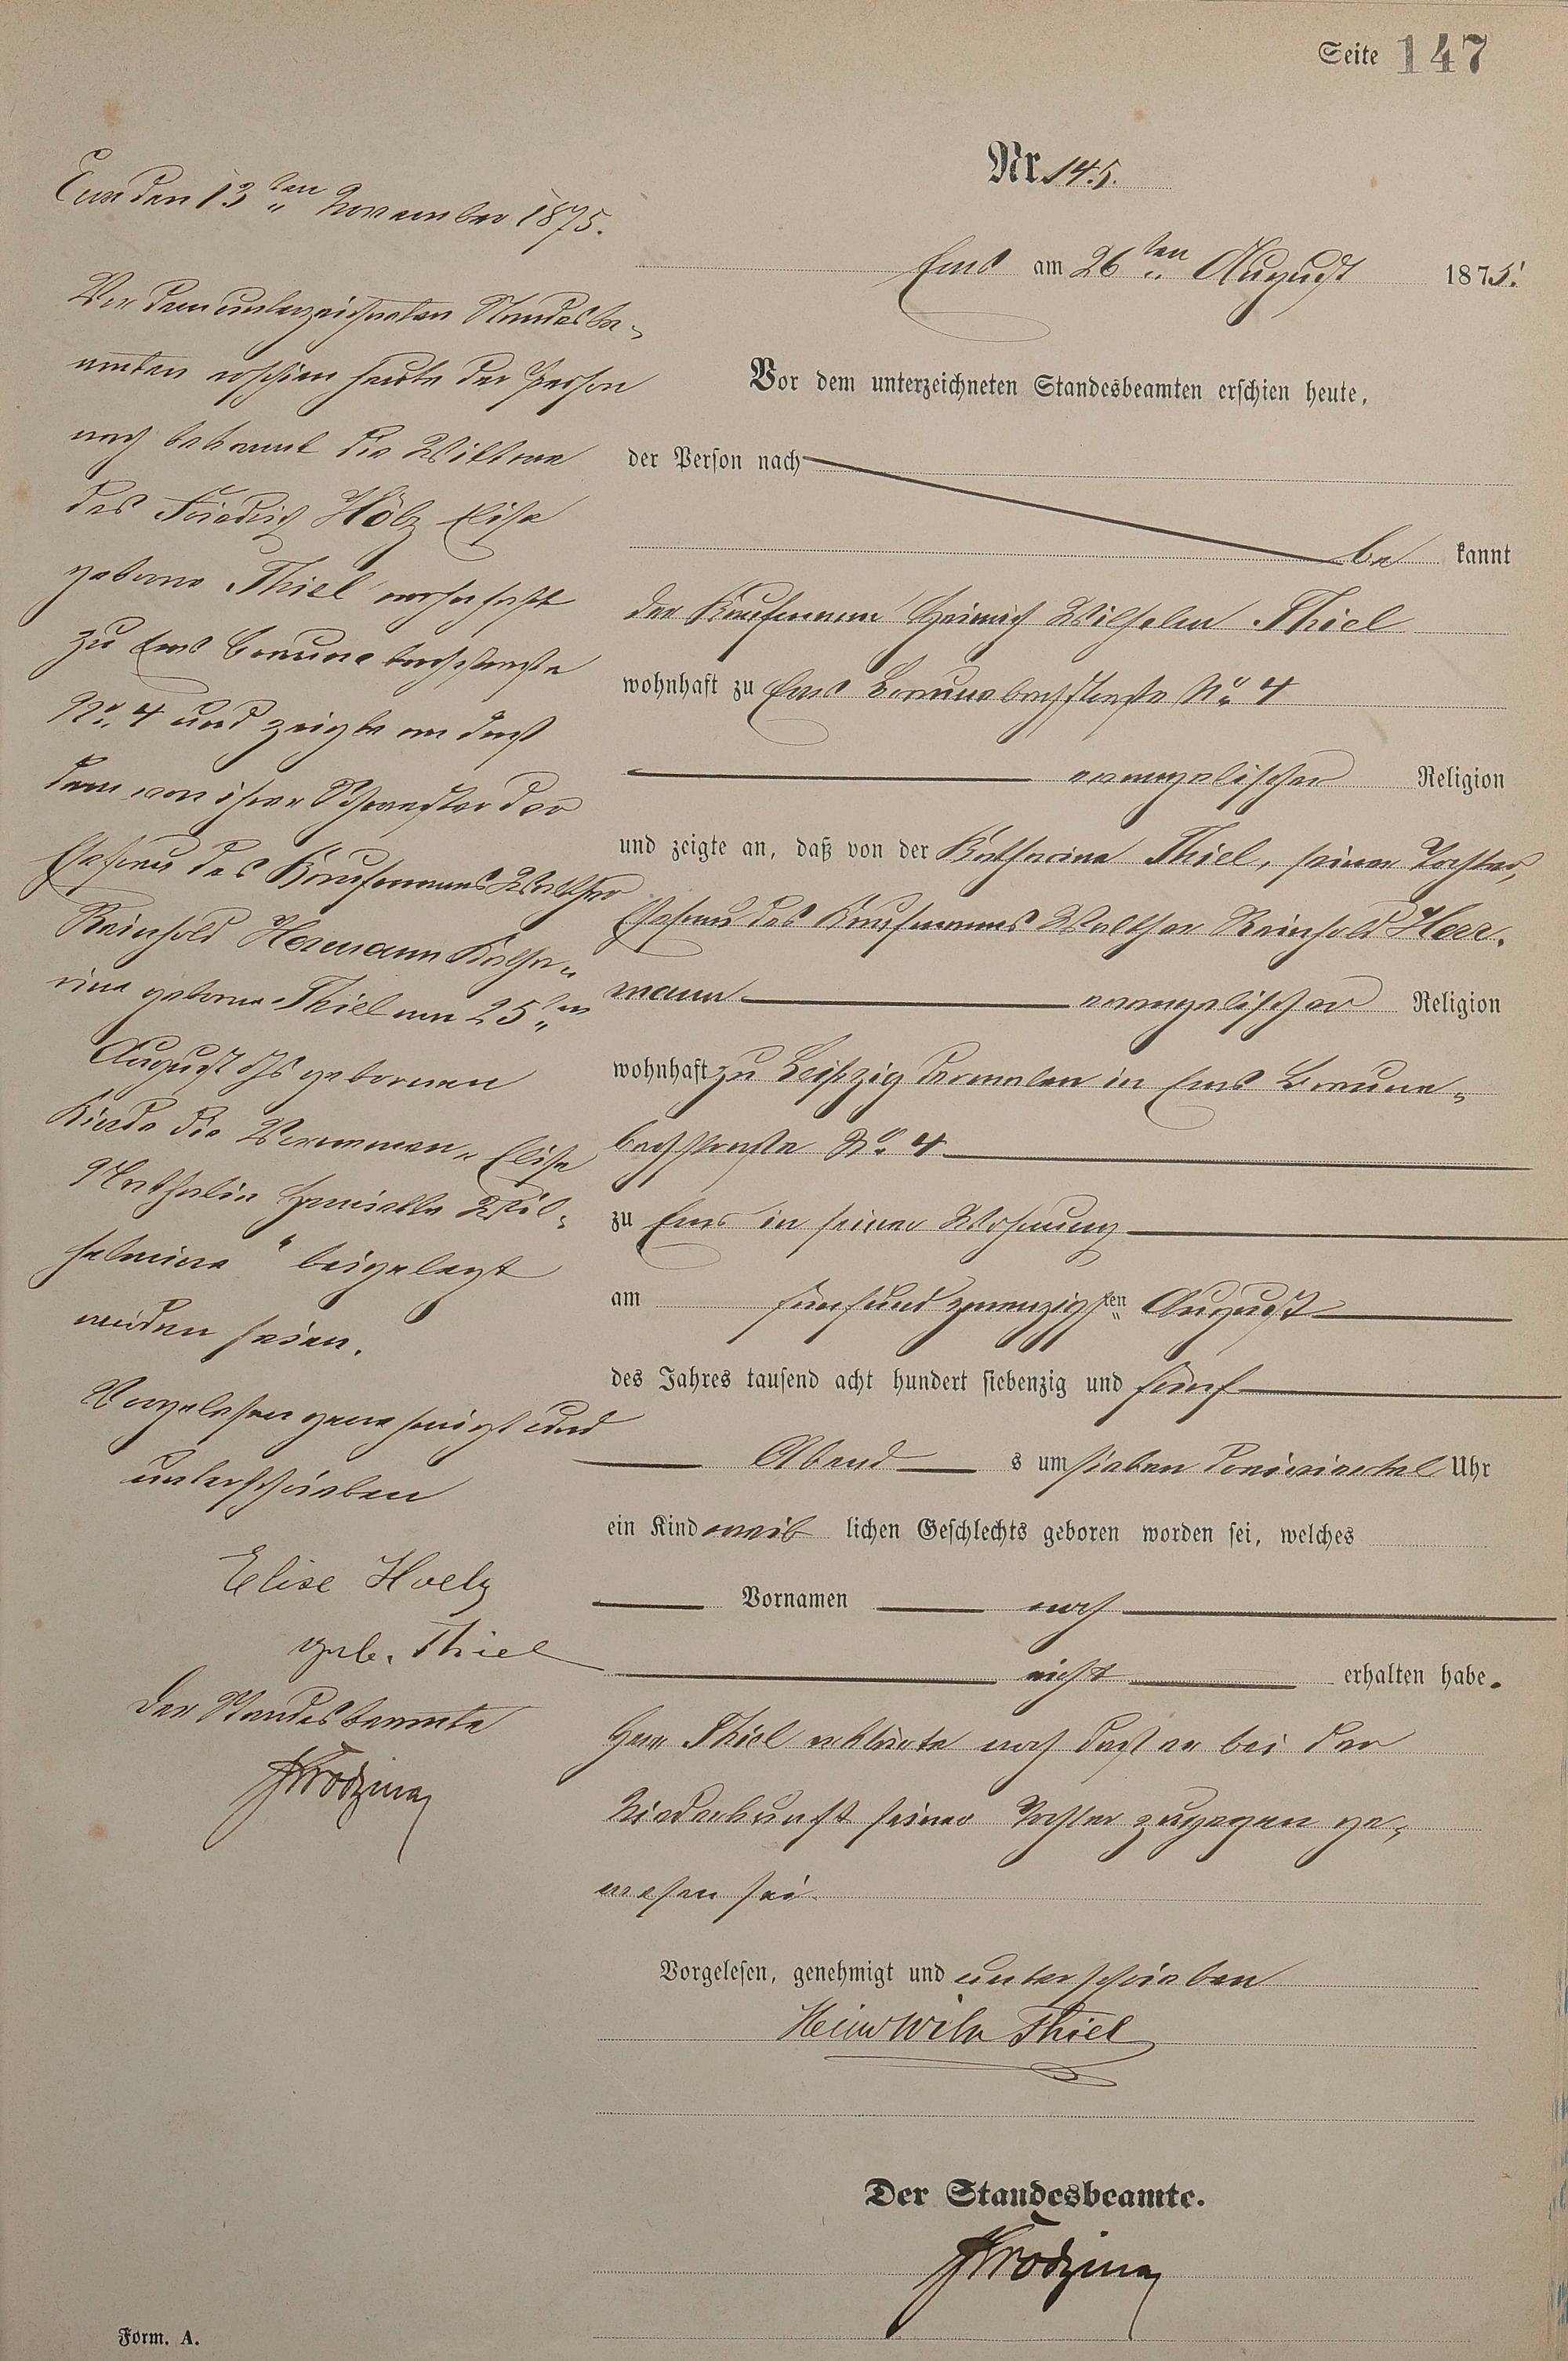 Seite 147
Nr. 145.
Ems am 26ten August 1875.
Vor dem unterzeichneten Standesbeamten erschien heute,
der Person nach
be kannt
der Kaufmann Heinrich Wilhelm Thiel
wohnhaft zu Ems Braunebachstraße No 4
evangelischer Religion
und zeigte an, daß von der Katharina Thiel, seiner Tochter,
Ehefrau des Kaufmanns Walther Reinhold Herr-
mann evangelischer Religion
wohnhaft zu Leipzig dermalen in Ems Braune-
bachstraße No 4
zu Ems in seiner Wohnung
am fünfundzwanzigsten August
des Jahres tausend acht hundert siebenzig und fünf
Abend s um sieben dreiviertel Uhr
ein Kind weib lichen Geschlechts geboren worden sei, welches
Vornamen noch
nicht erhalten habe.
Herr Thiel erklärte noch daß er bei der
Niederkunft seiner Tochter zugegen ge-
wesen sei.
Vorgelesen, genehmigt und unterschrieben
Heinr Wilh Thiel
Der Standesbeamte.
Ems den 13ten November 1875.
Vor dem unterzeichneten Standesbe-
amten erschien heute der Person
nach bekannt die Wittwe
des Friedrich Hölz Elise
geborne Thiel wohnhaft
zu Ems Braunebachstraße
No 4 und zeigte an daß
dem von ihrer Schwester der
Ehefrau des Kaufmanns Walther
Reinhold Herrmann Katha-
rina geborne Thiel am 25ten
August ds Js geborenen
Kinde die Vornamen „Elise
Nathalie Henriette Wil-
helmine“ beigelegt
worden seien.
Vorgelesen genehmigt und
unterschrieben
Elise Hoelz
geb. Thiel
Der Standesbeamte
Form. A.